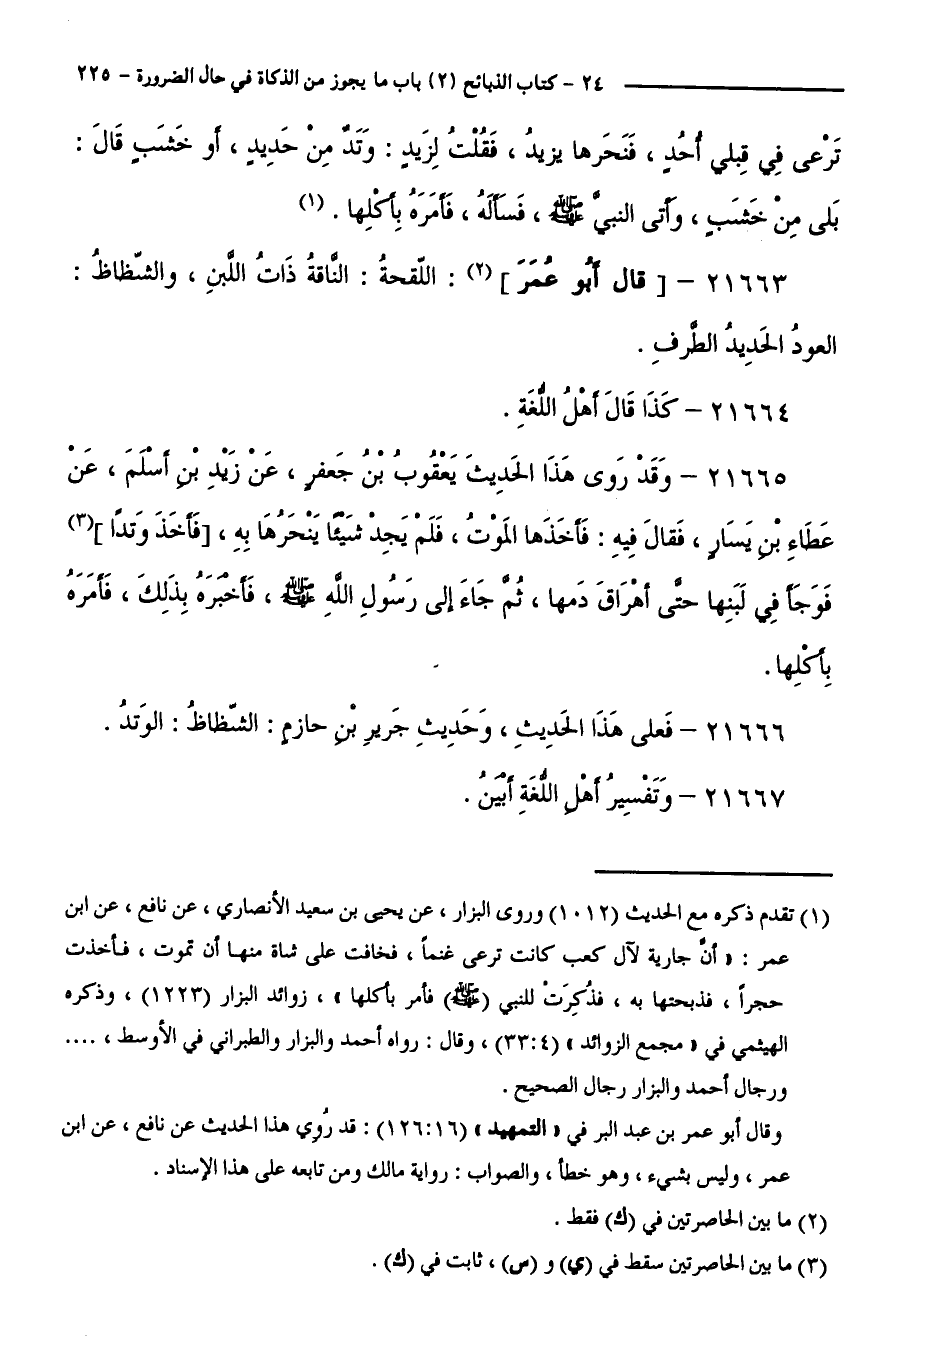 ٢٤ - كتاب الذبائح (٢) باب ما يجوز من الذكاة في حال الضرورة - ٢٢٥
تَرْعى فِي قِبلي أُحُدٍ ، فَنَحَرها يزيدُ ، فَقُلْتُ لِزَيدٍ : وَتَدٌ مِنْ حَديدٍ ، أو خَشَبٍ قَالَ :
بَلى مِنْ خَشَبٍ ، وأتى النبيَّ ﷺ ، فَسأَلَهُ ، فَأَمَرَهُ بِأَكْلِها . (١)
٢١٦٦٣ - [ قال أَبُو عُمَرَ ] (٢) : اللّقحةُ : النَّاقةُ ذَاتُ اللَّبنِ ، والشّظاظُ :
العودُ الحَديدُ الطَّرفِ .
٢١٦٦٤ - كَذَا قَالَ أَهْلُ اللُّغَةِ .
٢١٦٦٥ - وَقَدْ رَوى هَذَا الحَديثَ يَعْقُوبُ بْنُ جَعفرٍ ، عَنْ زَيْدِ بْنِ أَسْلَمَ ، عَنْ
عَطَاءِ بْنِ يَسَارٍ ، فَقالَ فِيهِ : فَأَخَذَها المَوْتُ ، فَلَمْ يَجِدْ شَيْئًا يَنْحَرُهَا بِهِ ، [فَأَخَذَ وَتدًا ](٣)
فَوَجَأَ فِي لَبَنِها حتَّى أهْرَاقَ دَمها ، ثُمَّ جَاءَ إلى رَسُولِ اللَّهِ ﷺ ، فَأَخْبَرَهُ بِذَلِكَ ، فَأَمَرَهُ
بِأَكْلِها .
٢١٦٦٦ - فَعلى هَذَا الحَديثِ ، وَحَديثِ جَريرِ بْنِ حازمٍ : الشّظاظُ : الوَتدُ .
٢١٦٦٧ - وَتَفْسِيرُ أَهْلِ اللُّغَةِ أَبْيَنُ .
(١) تقدم ذكره مع الحديث (١٠١٢) وروى البزار ، عن يحيى بن سعيد الأنصاري ، عن نافع ، عن ابن
عمر : « أنَّ جارية لآل كعب كانت ترعى غنماً ، فخافت على شاة منهـا أن تموت ، فـأخذت
حجراً ، فذبحتها به ، فذُكِرَتْ للنبي (ﷺ) فأمر بأكلها » ، زوائد البزار (١٢٢٣) ، وذكره
الهيثمي في « مجمع الزوائد » (٣٣:٤) ، وقال : رواه أحمد والبزار والطبراني في الأوسط ، ....
ورجال أحمد والبزار رجال الصحيح .
وقال أبو عمر بن عبد البر في « التمهيد » (١٢٦:١٦) : قد رُوِي هذا الحديث عن نافع ، عن ابن
عمر ، وليس بشيء ، وهو خطأ ، والصواب : رواية مالك ومن تابعه على هذا الإسناد .
(٢) ما بين الحاصرتين في (ك) فقط .
(٣) ما بين الحاصرتين سقط في (ي) و (س) ، ثابت في (ك) .